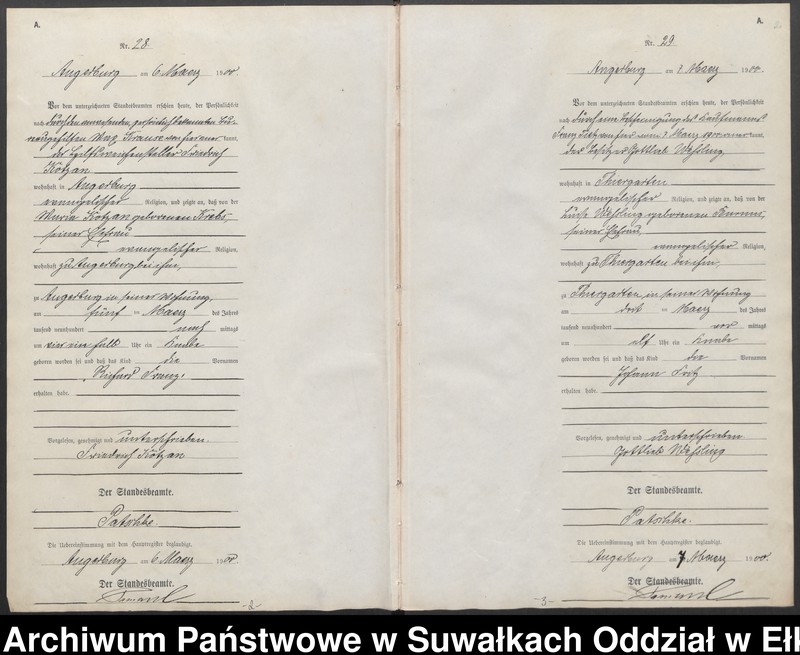 A.
Nr. 28.
Angerburg am 6. Maerz 1900.
Vor dem unterzeichneten Standesbeamten erschien heute, der Persönlichkeit
nach durch den anwesenden, persönlich bekannten Bu-
reaugehilfen Max Krause von hier anerkannt,
der Hilfsweichensteller Friedrich
Kötzan
wohnhaft in Angerburg
evangelischer Religion, und zeigte an, daß von der
Maria Kötzan geborenen Krebs,
seiner Ehefrau
evangelischer Religion,
wohnhaft zu Angerburg bei ihm,
zu Angerburg in seiner Wohnung,
am fünf ten Maerz des Jahres
tausend neunhundert nach mittags
um vier ein halb Uhr ein Knabe
geboren worden sei und daß das Kind die Vornamen
Richard Franz
erhalten habe.
Vorgelesen, genehmigt und unterschrieben.
Friedrich Kötzan
Der Standesbeamte.
Patschke.
Die Uebereinstimmung mit dem Hauptregister beglaubigt.
Angerburg am 6. Maerz 1900
Der Standesbeamte.
-2-
A.
Nr. 29.
Angerburg am 7. Maerz 1900.
Vor dem unterzeichneten Standesbeamten erschien heute, der Persönlichkeit
nach durch eine Bescheinigung des Kaufmanns
Franz von hier vom 7. Maerz 1900 kannt,
der Besitzer Gottlieb Weßling,
wohnhaft in Thiergarten
evangelischer Religion, und zeigte an, daß von der
Luise Weßling geborenen
seiner Ehefrau,
evangelischer Religion,
wohnhaft zu Thiergarten bei ihm,
zu Thiergarten, in seiner Wohnung
am drit ten Maerz des Jahres
tausend neunhundert vor mittags
um elf Uhr ein Knabe
geboren worden sei und daß das Kind die Vornamen
Johann Fritz
erhalten habe.
Vorgelesen, genehmigt und unterschrieben
Gottlieb Weßling
Der Standesbeamte.
Patschke.
Die Uebereinstimmung mit dem Hauptregister beglaubigt.
Angerburg am 7. Maerz 1900.
Der Standesbeamte.
-3-
Archiwum Państwowe w Suwałkach Oddział w Ełk